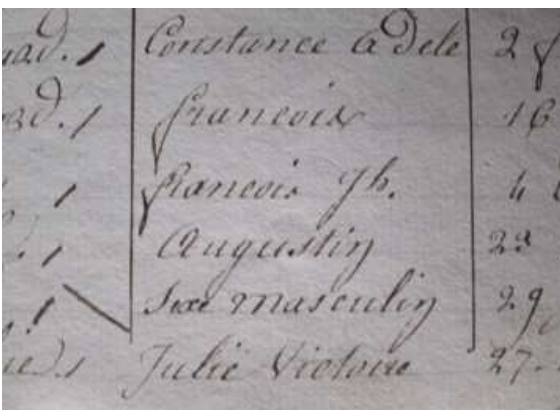 ad. 1 Constance adele 2 f
ad. 1 francois 16
1 francois jh. 4
1 Augustin 22
1 Sexe masculin 29
1 Julie Victoire 27